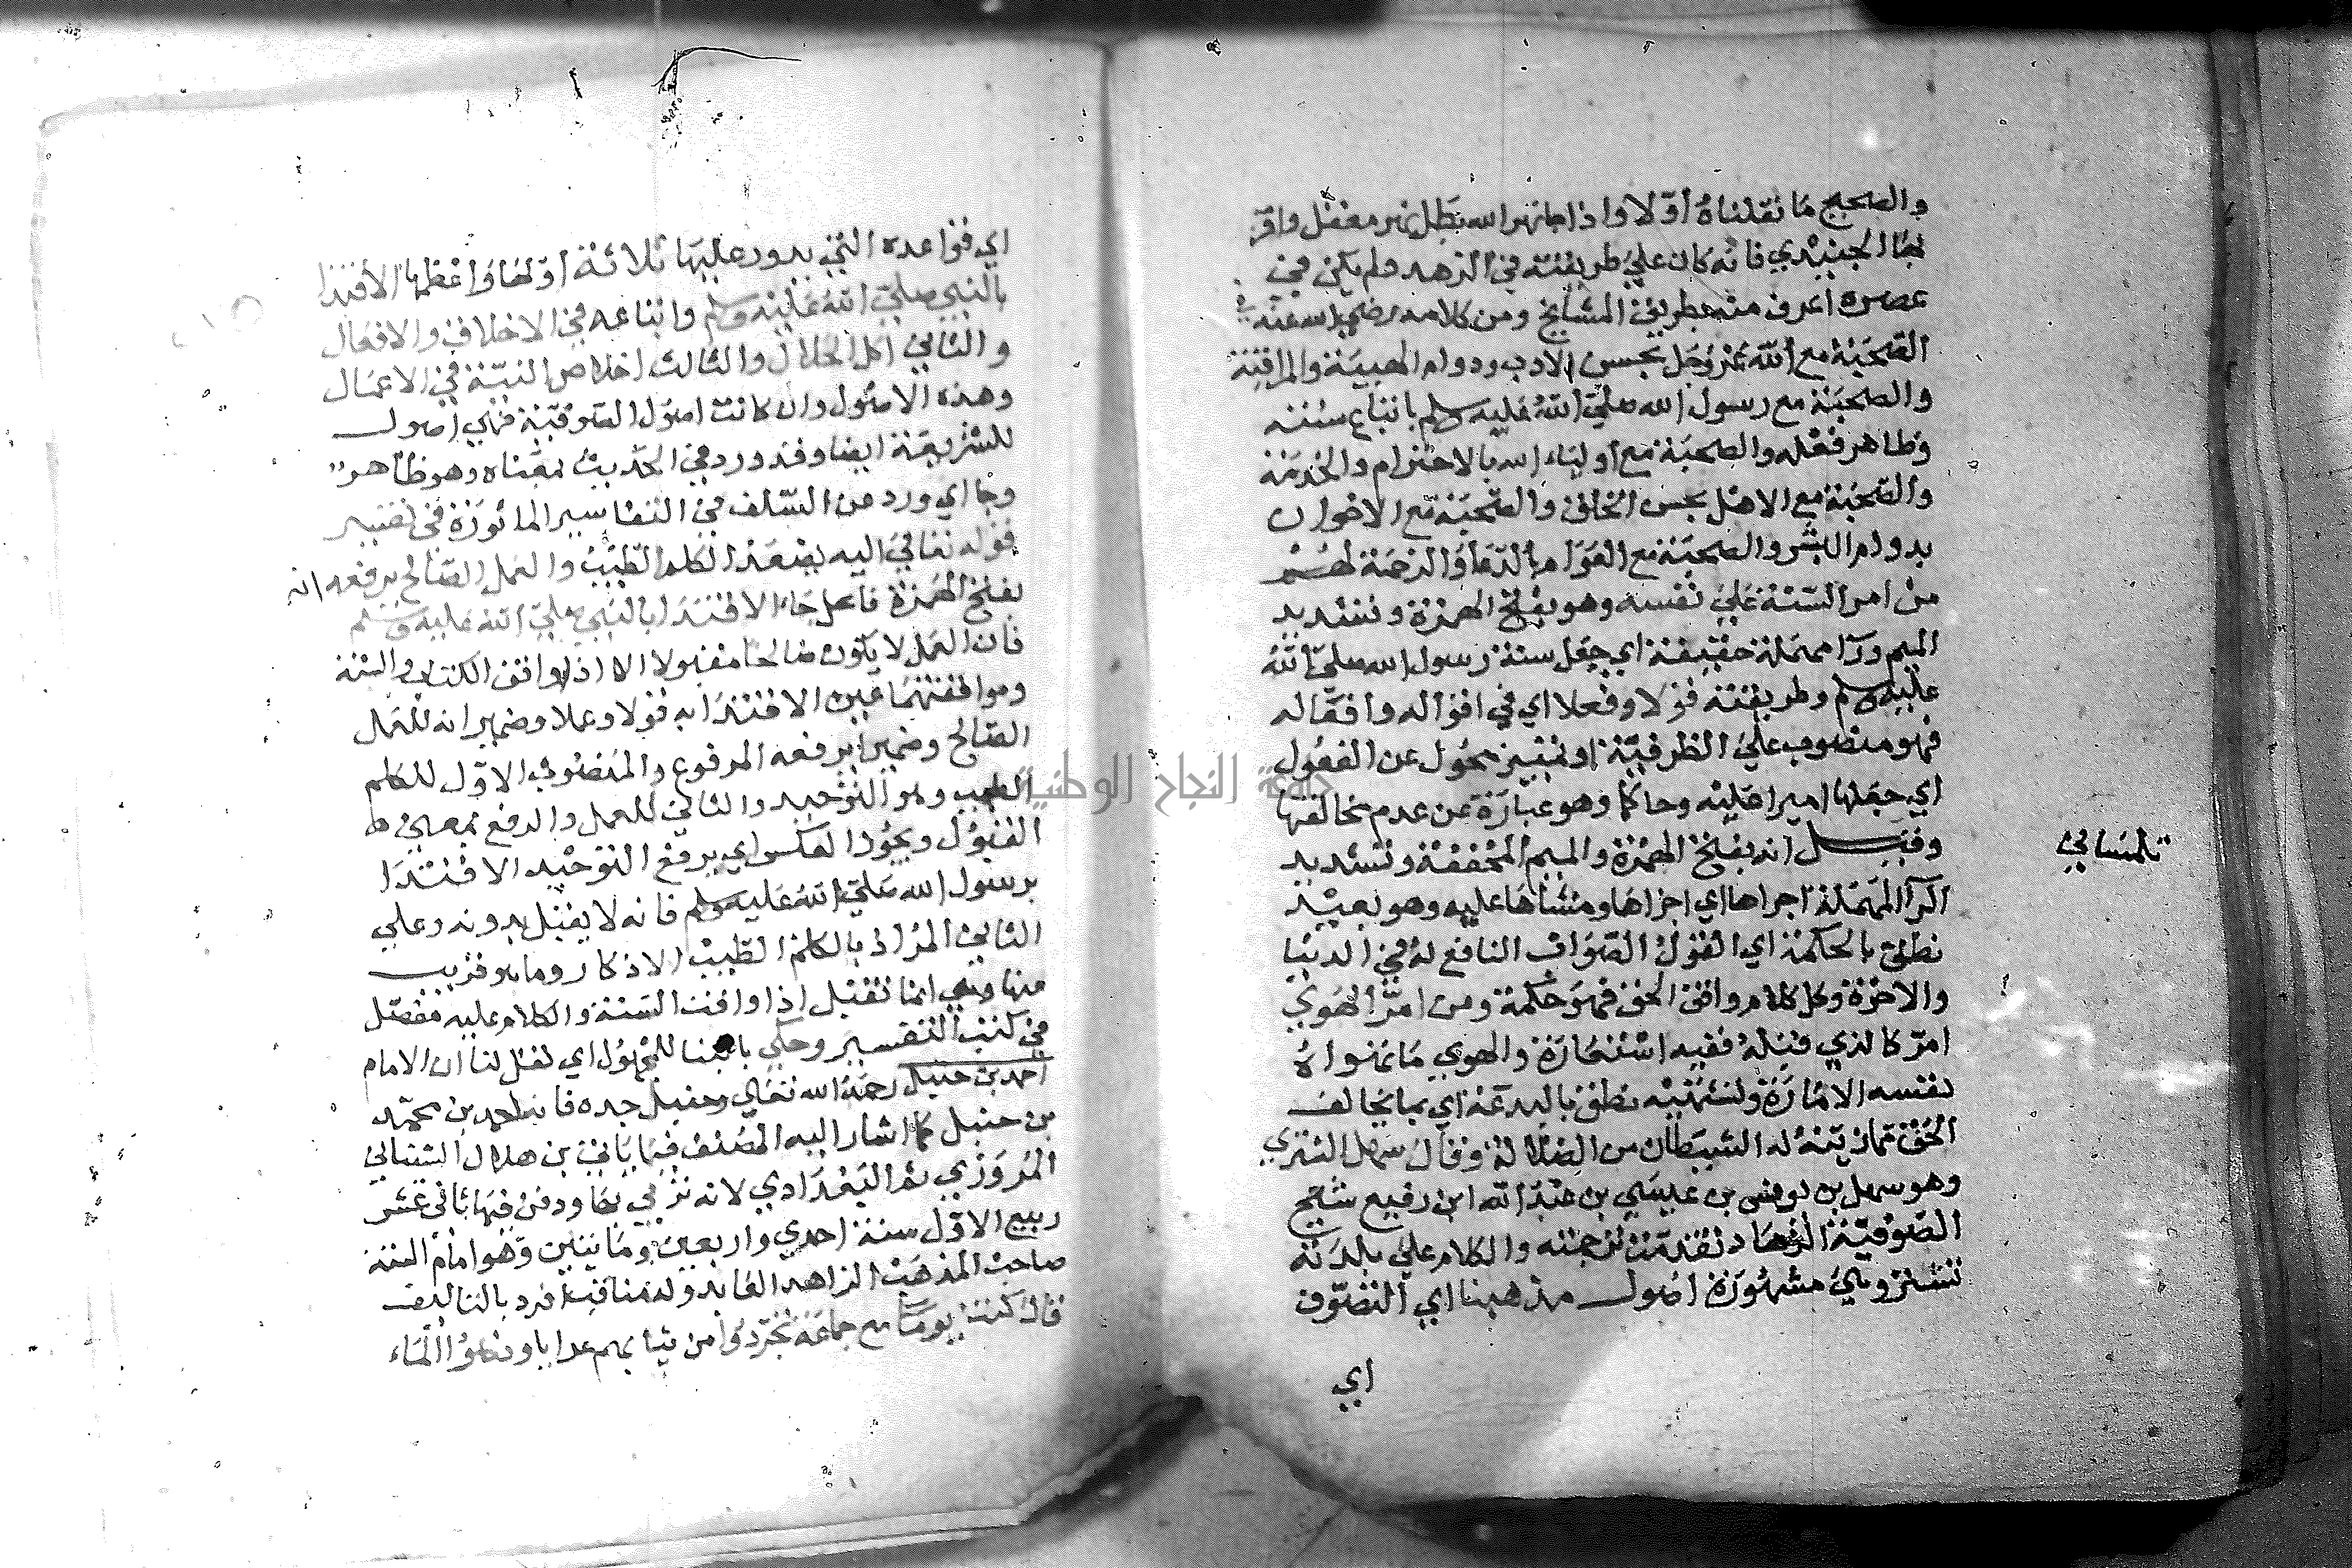 والصحيح ما نقلناه أولا واذا جا نهر الله بطل نهر معقل واقر
عصره اعرف منه بطريق المشايخ ومن كلامه رضي الله عنه في
الصحبة مع الله عز وجل بحسن الادب ودوام الهيبة والمراقبة
والصحبة مع رسول الله صلي الله عليه وسلم باتباع سنته
وظاهر فعله والصحبة مع أولياء الله بالاحترام والخدمة
والصحبة مع الاهل بحسن الخلق والصحبة مع الاخوان
بدوام البشر والصحبة مع العوام بالدعا والرحمة لهم
من امر السنة علي نفسه وهو بفتح الهمزة وتشديد
الميم ورا مهملة حقيقة اي جعل سنة رسول الله صلي الله
عليه وسلم وطريقته قولا وفعلا اي في اقواله وافعاله
فهو منصوب علي الظرفية او تمييز محول عن المفعول
اي جعلها اميرا عليه وحاكما وهو عبارة عن عدم مخالفتها
وقيل انه بفتح الهمزة والميم المخففة وتشديد
تلمساني
الرا المهملة اجراها اي اجزاها ومشاها عليه وهو بعيد
نطق بالحكمة اي القول الصواب النافع له في الدنيا
والاخرة وكل كلام وافق الحق فهو حكمة ومن امر الهوي
امر كالذي قبله ففيه استعارة والهوي ما تهواه
نفسه الامارة وتشتهيه نطق بالبدعة اي بما يخالف
الحق مما زينه له الشيطان من الضلالة وقال سهل التستري
وهو سهل بن يونس بن عيسي بن عبد الله ابن رفيع شيخ
الصوفية الزهاد تقدمت ترجمته والكلام علي بلدته
تستر وهي مشهورة اصول مذهبنا اي التصوف
اي
اي قواعده التي يدور عليها ثلاثة أولها وأعظمها الاقتدا
بالنبي صلي الله عليه وسلم واتباعه في الاخلاق والافعال
والثاني اكل الحلال والثالث اخلاص النية في الاعمال
وهذه الاصول وان كانت اصول الصوفية فهي اصول
للشريعة ايضا وقد ورد في الحديث بمعناه وهو ظاهر
وجا اي ورد عن السلف في التفاسير الماثورة في تفسير
قوله تعالي اليه يصعد الكلم الطيب والعمل الصالح يرفعه انه
بفتح الهمزة فاعل جاء الاقتدا بالنبي صلي الله عليه وسلم
فان العمل لا يكون صالحا مقبولا الا اذا وافق الكتاب والسنة
وموافقتهما عين الاقتدا به قولا وعملا وضمير انه للعمل
الصالح وضمير يرفعه المرفوع والمنصوب الاول للكلم
الطيب وهو التوحيد والثاني للعمل والرفع بمعني
القبول ويجوز العكس اي يرفع التوحيد الاقتدا
برسول الله صلي الله عليه وسلم فانه لا يقبل بدونه وعلي
الثاني المراد بالكلم الطيب الاذكار وما هو قريب
منها وهي انما تقبل اذا وافقت السنة والكلام عليه مفصل
في كتب التفسير وحكي بالبنا للمجهول اي نقل لنا ان الامام
احمد بن حنبل رحمه الله تعالي وحنبل جده فانه احمد بن محمد
بن حنبل كما اشار اليه المصنف فيما ياتي بن هلال الشيباني
المروزي ثم البغدادي لانه تربي بها ودفن فيها ثاني عشر
ربيع الاول سنة احدي واربعين ومايتين وهو امام السنة
صاحب المذهب الزاهد العابد وله مناقب افرد بالتاليف
قال كنت يوما مع جماعة تجردوا من ثيابهم عرايا ودخلوا الماء